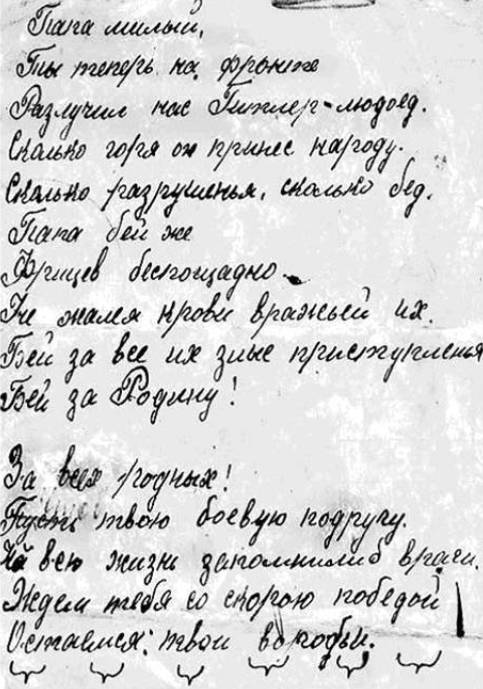 Папа милый,
Ты теперь на фронте
Разлучил нас Гитлер-людоед.
Сколько горя он принес народу.
Сколько разрушенья, сколько бед.
Папа бей же
Фрицев беспощадно
Не жалея крови вражьей их.
Бей за все их злые приступленья
Бей за Родину!
За всех родных!
Пусть твою боевую подругу.
На всю жизнь запомнили б враги.
Ждем тебя со скорою победой!
Остаемся: твои воробьи.